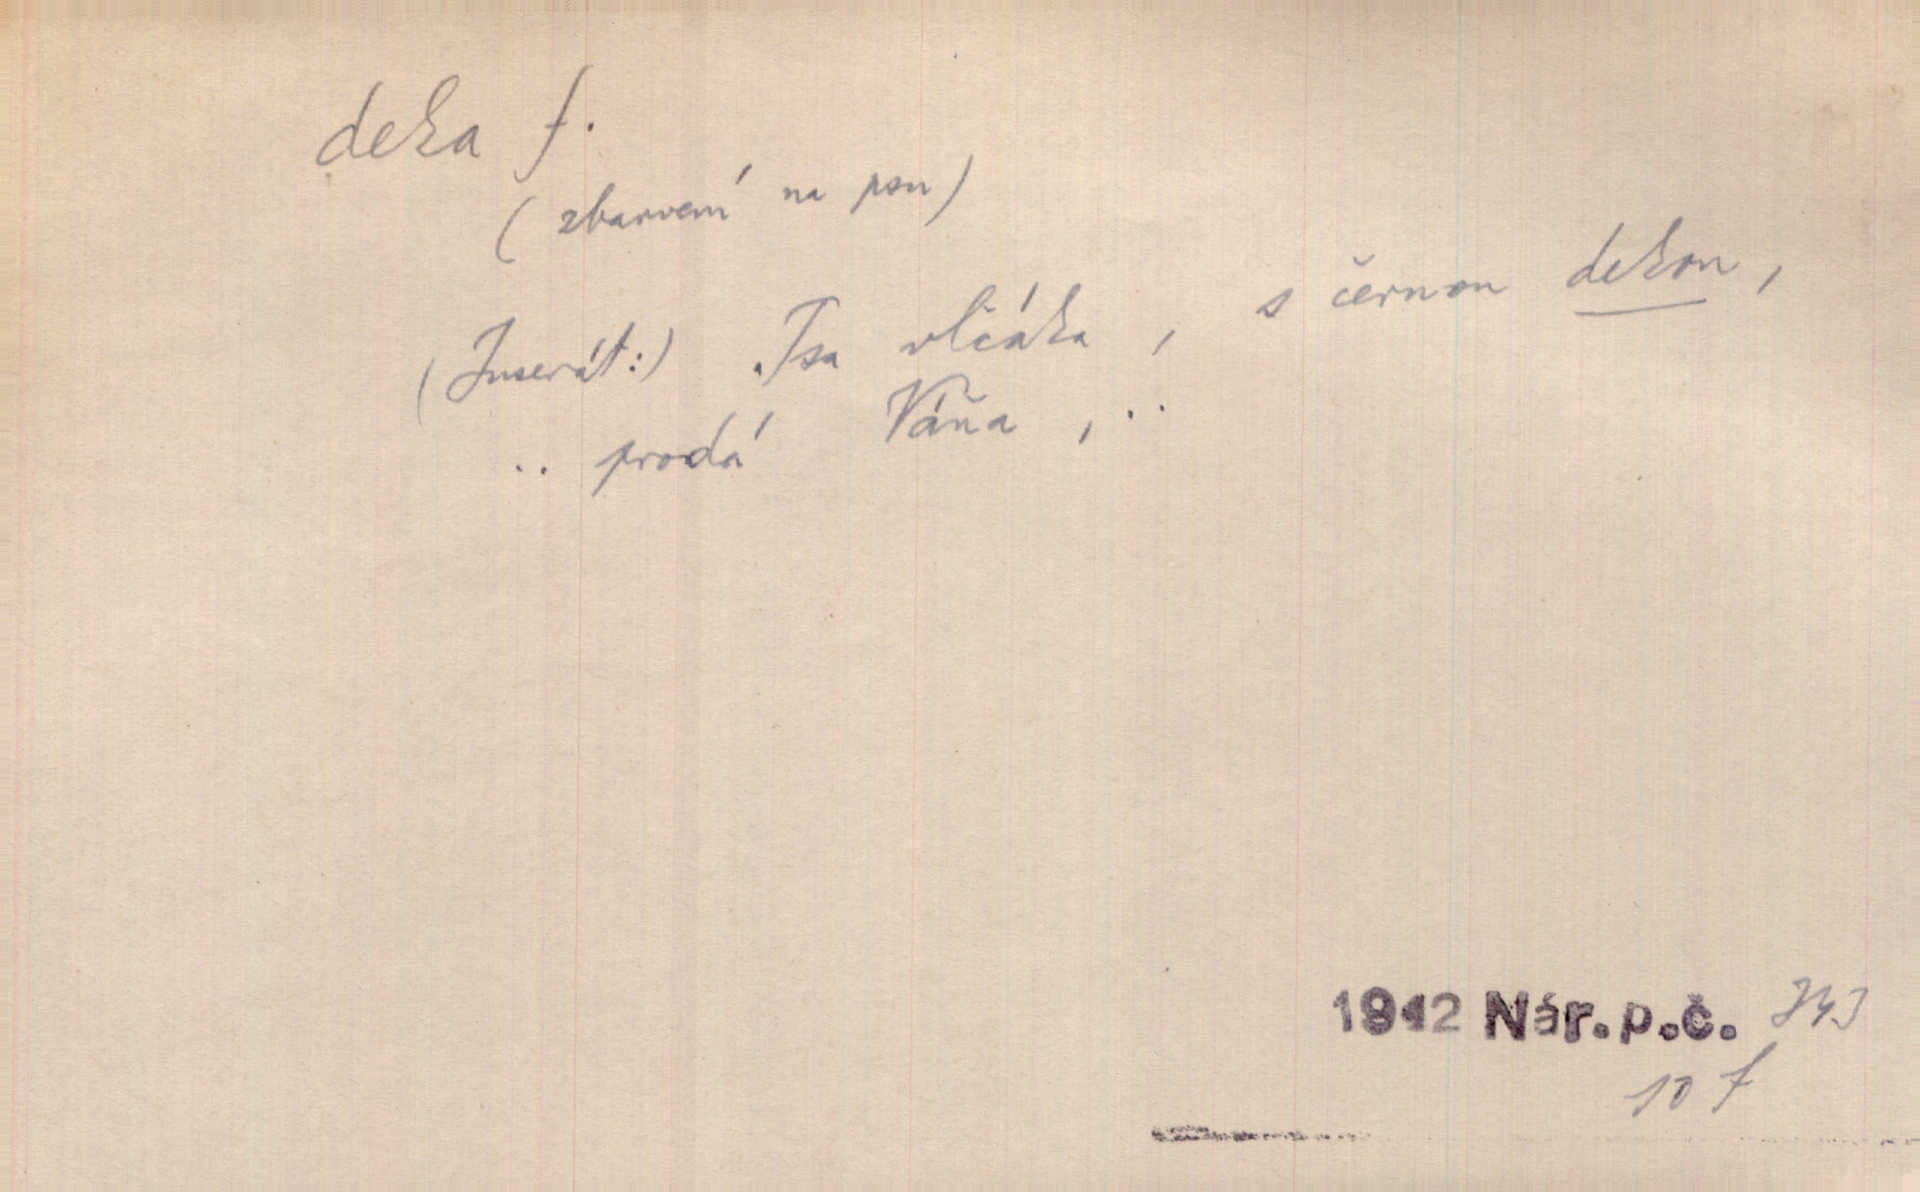 deka f.
(zbarvení na psu)
(Inserát:) Psa vlčáka, s černou dekou,
.. prodá Váňa, ..
1942 Nár. p. č. 343
10 f